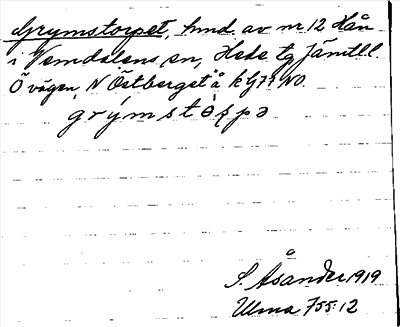 Grymstorpet, hmd. av nr 12 Hån
i Vemdalens sn, Hede tg Jämtl l.
Ö vägen, N Östberget å k G77 NO.
grýmstòrpə
S. Åsander 1919
Ulma 755:12